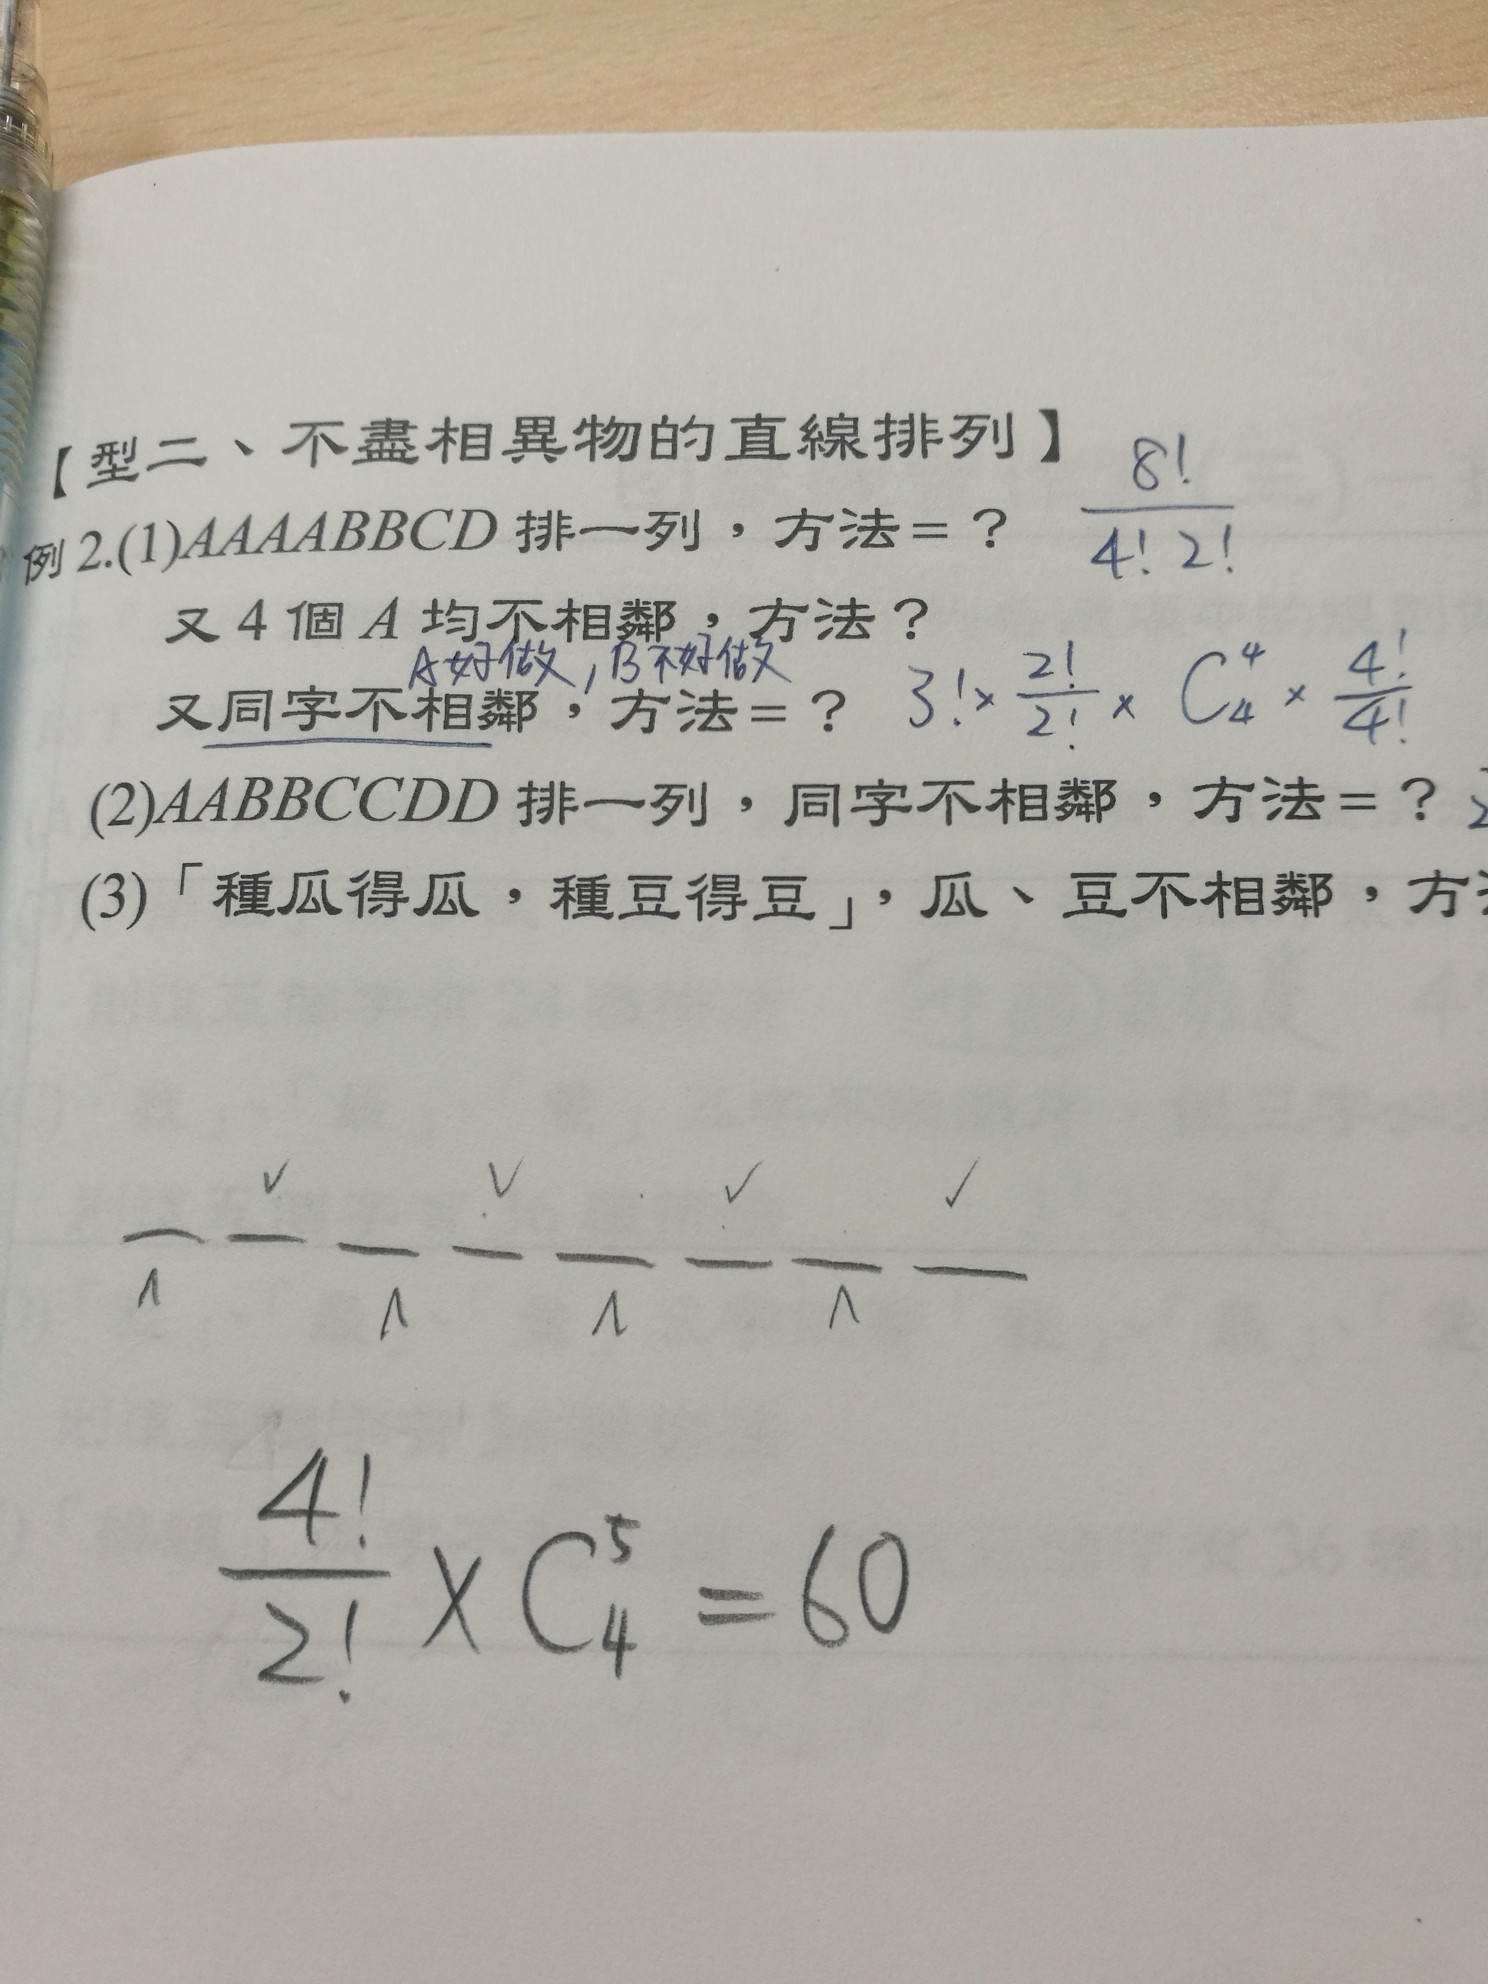 【型二、不盡相異物的直線排列】
例2.(1)AAAABBCD 排一列，方法=？ 8!/4!2!
又4個A均不相鄰，方法？
A好做,B不好做
又同字不相鄰，方法=？ 3!×2!/2!×C⁴₄×4!/4!
(2)AABBCCDD 排一列，同字不相鄰，方法=？
(3)「種瓜得瓜，種豆得豆」，瓜、豆不相鄰，方
4!/2!×C⁵₄=60